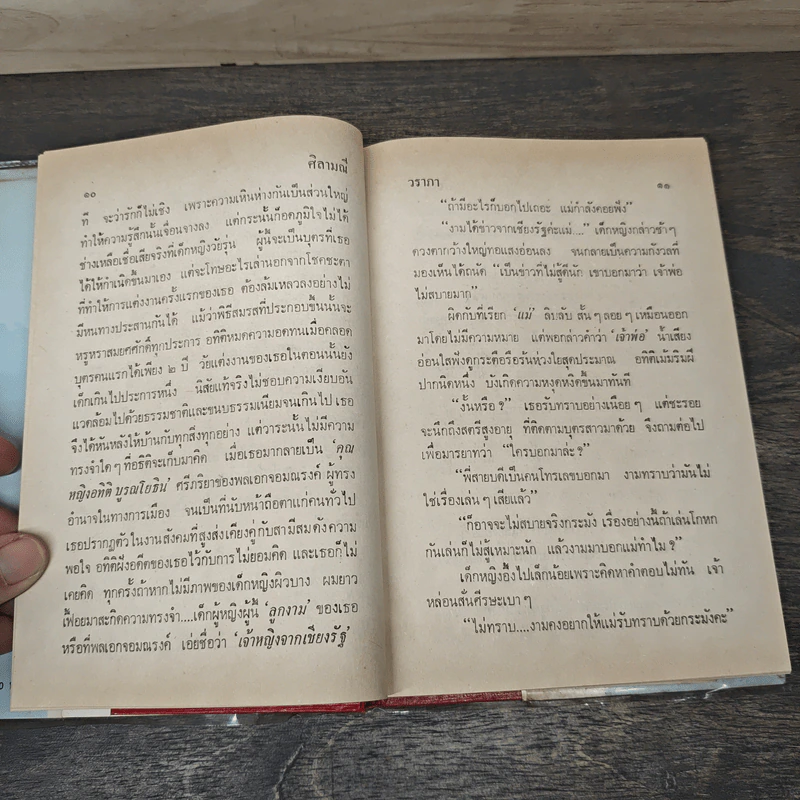 ๑๐
ศิลามณี
ที จะว่ารักก็ไม่เชิง เพราะความเหินห่างกันเป็นส่วนใหญ่
ทำให้ความรู้สึกนั้นเจื่อนจางลง แต่กระนั้นก็อดภูมิใจไม่ได้
ช่างเหลือเชื่อเสียจริงที่เด็กหญิงวัยรุ่น ผู้นี้จะเป็นบุตรที่เธอ
ได้ให้กำเนิดขึ้นมาเอง แต่จะโทษอะไรเล่านอกจากโชคชะตา
ที่ทำให้การแต่งงานครั้งแรกของเธอ ต้องล้มเหลวลงอย่างไม่
มีหนทางประสานกันได้ แม้ว่าพิธีสมรสที่ประกอบขึ้นนั้นจะ
หรูหราสมยศศักดิ์ทุกประการ อทิติหมดความอดทนเมื่อคลอด
บุตรคนแรกได้เพียง ๒ ปี วัยแต่งงานของเธอในตอนนั้นยัง
เด็กเกินไปประการหนึ่ง นิสัยแท้จริงไม่ชอบความเงียบอัน
แวดล้อมไปด้วยธรรมชาติและขนบธรรมเนียมจนเกินไป เธอ
จึงได้หันหลังให้บ้านกับทุกสิ่งทุกอย่าง แต่วาระนั้นไม่มีความ
ทรงจำใด ๆ ที่อธิติจะเก็บมาคิด เมื่อเธอมากลายเป็น ‘คุณ
หญิงอทิติ บูรณโยธิน’ ศรีภริยาของพลเอกจอมณรงค์ ผู้ทรง
อำนาจในทางการเมือง จนเป็นที่นับหน้าถือตาแก่คนทั่วไป
เธอปรากฏตัวในงานสังคมที่สูงส่งเคียงคู่กับสามีสมดังความ
พอใจ อทิติฝังอดีตของเธอไว้กับการไม่ยอมคิด และเธอก็ไม่
เคยคิด ทุกครั้งถ้าหากไม่มีภาพของเด็กหญิงผิวบาง ผมยาว
เฟื้อยมาสะกิดความทรงจำ....เด็กผู้หญิงผู้นี้ ‘ลูกงาม’ ของเธอ
หรือที่พลเอกจอมณรงค์ เอ่ยชื่อว่า ‘เจ้าหญิงจากเชียงรัฐ’
วราภา
๑๑
“ถ้ามีอะไรก็บอกไปเถอะ แม่กำลังคอยฟัง”
“งามได้ข่าวจากเชียงรัฐค่ะแม่....” เด็กหญิงกล่าวช้า ๆ
ดวงตากว้างใหญ่ทอแสงอ่อนลง จนกลายเป็นความกังวลที่
มองเห็นได้ถนัด “เป็นข่าวที่ไม่สู้ดีนัก เขาบอกมาว่า เจ้าพ่อ
ไม่สบายมาก”
ผิดกับที่เรียก ‘แม่’ ลิบลับ สั้น ๆ ลอย ๆ เหมือนออก
มาโดยไม่มีความหมาย แต่พอกล่าวคำว่า ‘เจ้าพ่อ’ น้ำเสียง
อ่อนใสฟังดูกระตือรือร้นห่วงใยสุดประมาณ อทิติเม้มริมฝี
ปากนิดหนึ่ง บังเกิดความหงุดหงิดขึ้นมาทันที
“งั้นหรือ ?” เธอรับทราบอย่างเนือย ๆ แต่ชะรอย
จะนึกถึงสตรีสูงอายุ ที่ติดตามบุตรสาวมาด้วย จึงถามต่อไป
เพื่อมารยาทว่า “ใครบอกมาล่ะ ?”
“พี่สายบดีเป็นคนโทรเลขบอกมา งามทราบว่ามันไม่
ใช่เรื่องเล่น ๆ เสียแล้ว”
“ก็อาจจะไม่สบายจริงกระมัง เรื่องอย่างนี้ถ้าเล่นโกหก
กันเล่นก็ไม่สู้เหมาะนัก แล้วงามมาบอกแม่ทำไม ?”
เด็กหญิงอึ้งไปเล็กน้อยเพราะคิดหาคำตอบไม่ทัน เจ้า
หล่อนสั่นศีรษะเบา ๆ
“ไม่ทราบ....งามคงอยากให้แม่รับทราบด้วยกระมังคะ”